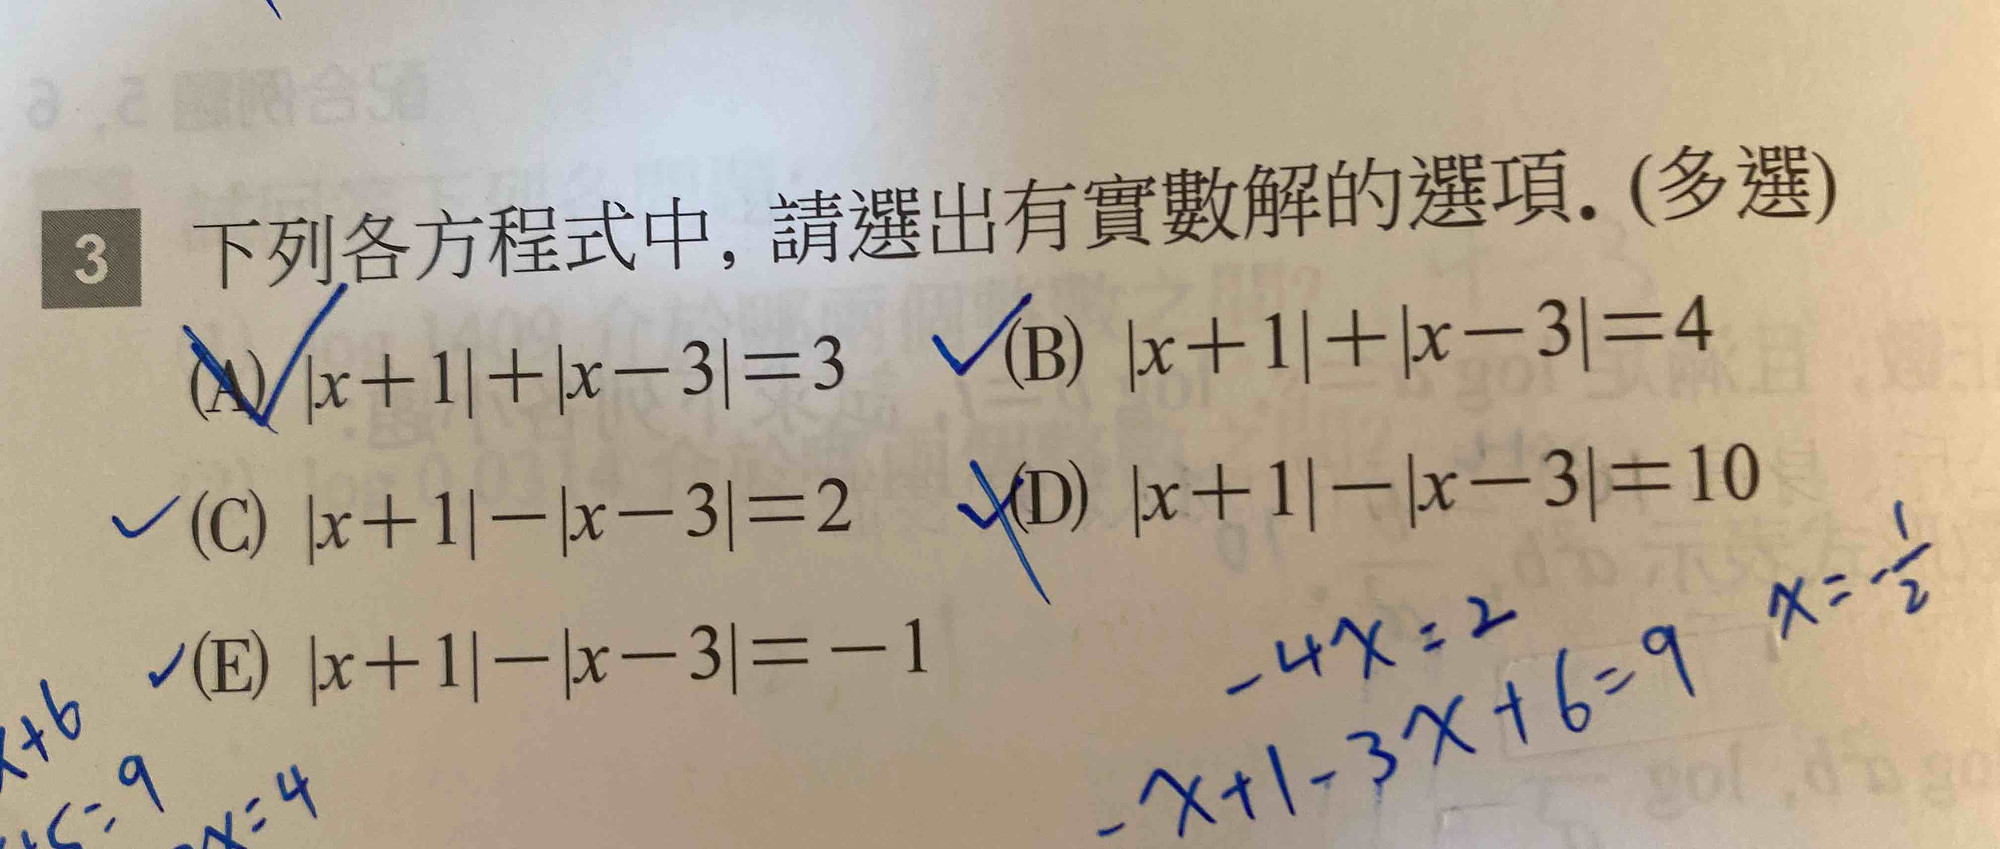 3 下列各方程式中, 請選出有實數解的選項. (多選)
(A) |x+1|+|x-3|=3 (B) |x+1|+|x-3|=4
(C) |x+1|-|x-3|=2 (D) |x+1|-|x-3|=10
(E) |x+1|-|x-3|=-1
x=-1/2
-4x=2
-x+1-3x+6=9
x+6
=9
x=4